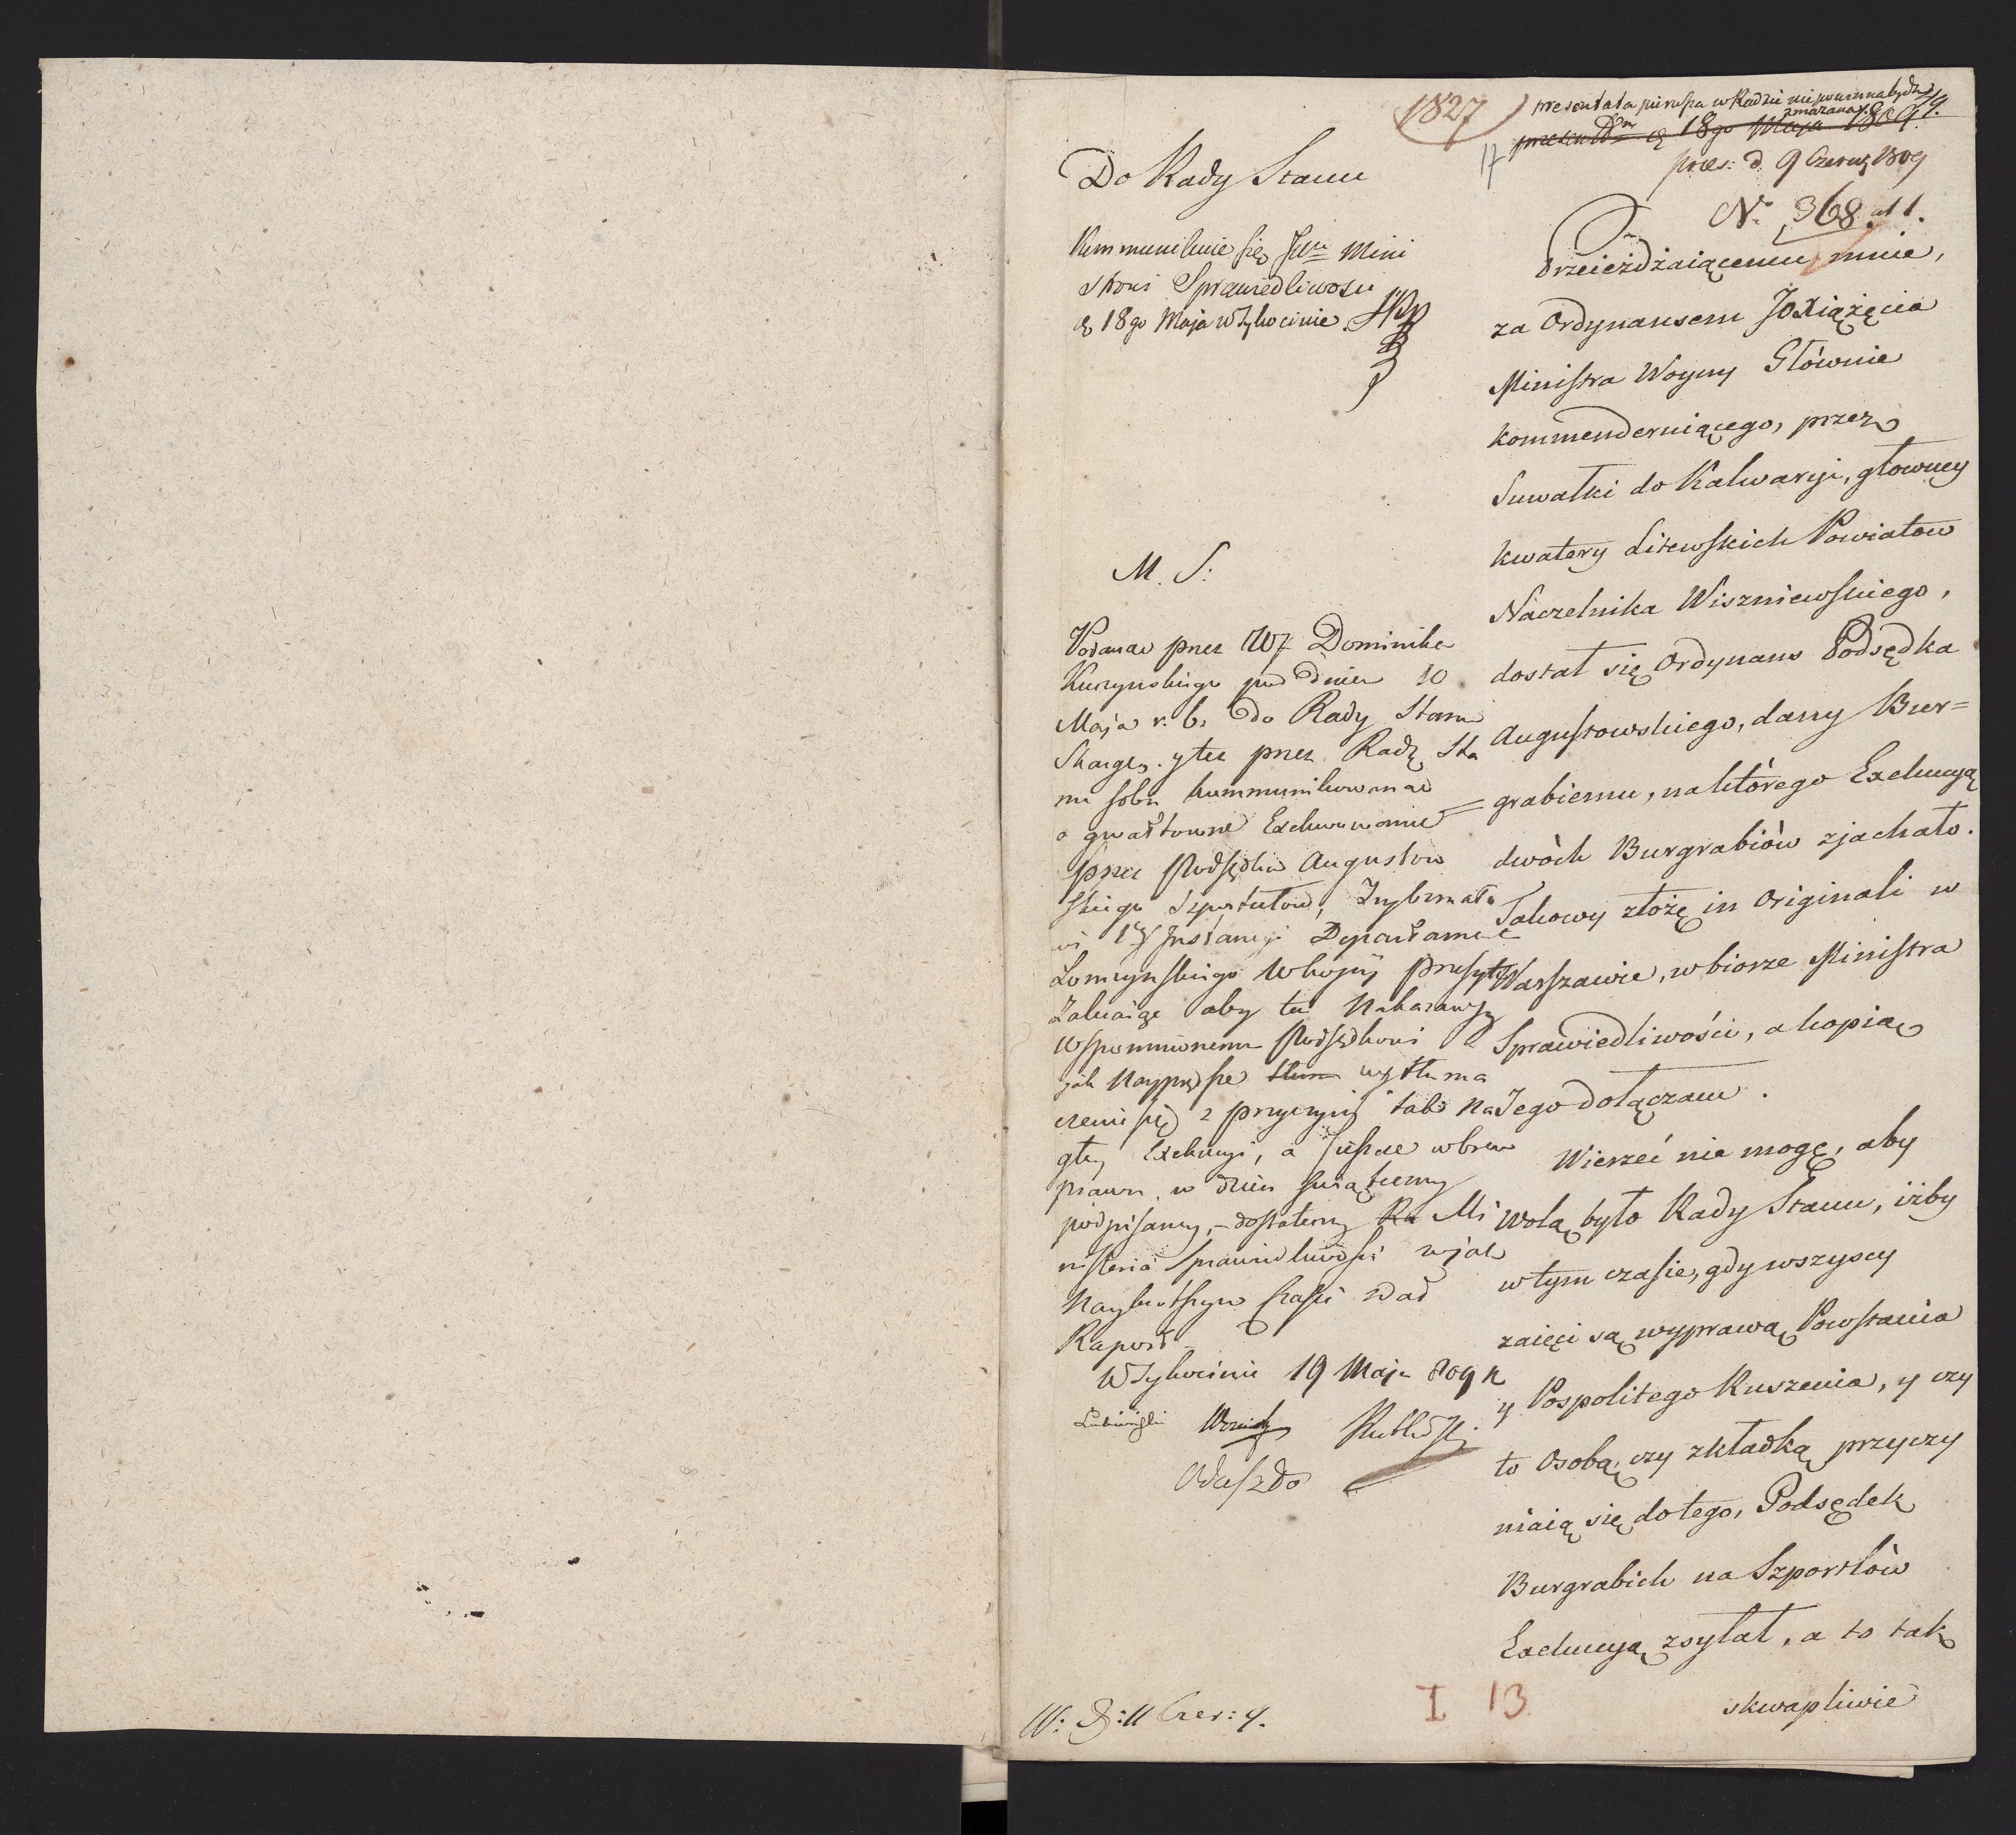 1827
presentata pierwsza w Radzie nie powinna bydź
zmazana
presen Dm d 18go Maja 1809.
17
pres: d 9 Czerw 1809
No 368. ad 1.
Do Rady Stanu
Kommunikuie się JWu Mini
strowi Sprawiedliwości
d 18go Maja w Tykocinie.
M. S:
Podane przez W Dominika
Kuczynskiego pod dniem 10
Maja r. b. do Rady Stanu
Skargę, y tu przez Radę Sta
nu sobie kommunikowane
o gwałtowne Exekwowanie
przez Podsędka Augustow
skiego Szportulow, Trybunało
wi 1y Instancyi Departamentu
Łomzynskiego w kopij przesyła
Zalecaiąc aby ten nakazawszy
wspomnionemu Podsędkowi
jak naypredsze wytłuma
czenie się z przyczyny tak na
głey Exekucyi, a ieszcze wbrew
prawu w dzien swiąteczny
podpisaney, – dostateczny Mi
nistrowi Sprawiedliwości w jak
naykrótszym czasie zdał
Raport –
W Tykocinie 19 Maja 809 r
Lubieński
W: D: 11 Czer: 9.
Przeieżdżaiącemu mnie,
za Ordynansem JOXiążęcia
Ministra Woyny Głównie
kommenderuiącego, przez
Suwałki do Kalwaryi, głowney
kwatery Litewskich Powiatow
Naczelnika Wiszniewskiego,
dostał się Ordynans Podsędka
Augustowskiego, dany Bur=
=grabiemu, na którego Exekucyą
dwóch Burgrabiów zjachało.
Takowy złożę in Originali w
Warszawie, w biorze Ministra
Sprawiedliwości, a kopią
Jego dołączam.
Wierzeć nie mogę, aby
wolą było Rady Stanu, iżby
w tym czasie, gdy wszyscy
zaięci są wyprawą Powstania
y Pospolitego Ruszenia, y czy
to Osobą, czy zkładką przyczy
niaią się do tego, Podsędek
Burgrabich na Szportlów
Exekucyą zsyłał, a to tak
skwapliwie
I 13